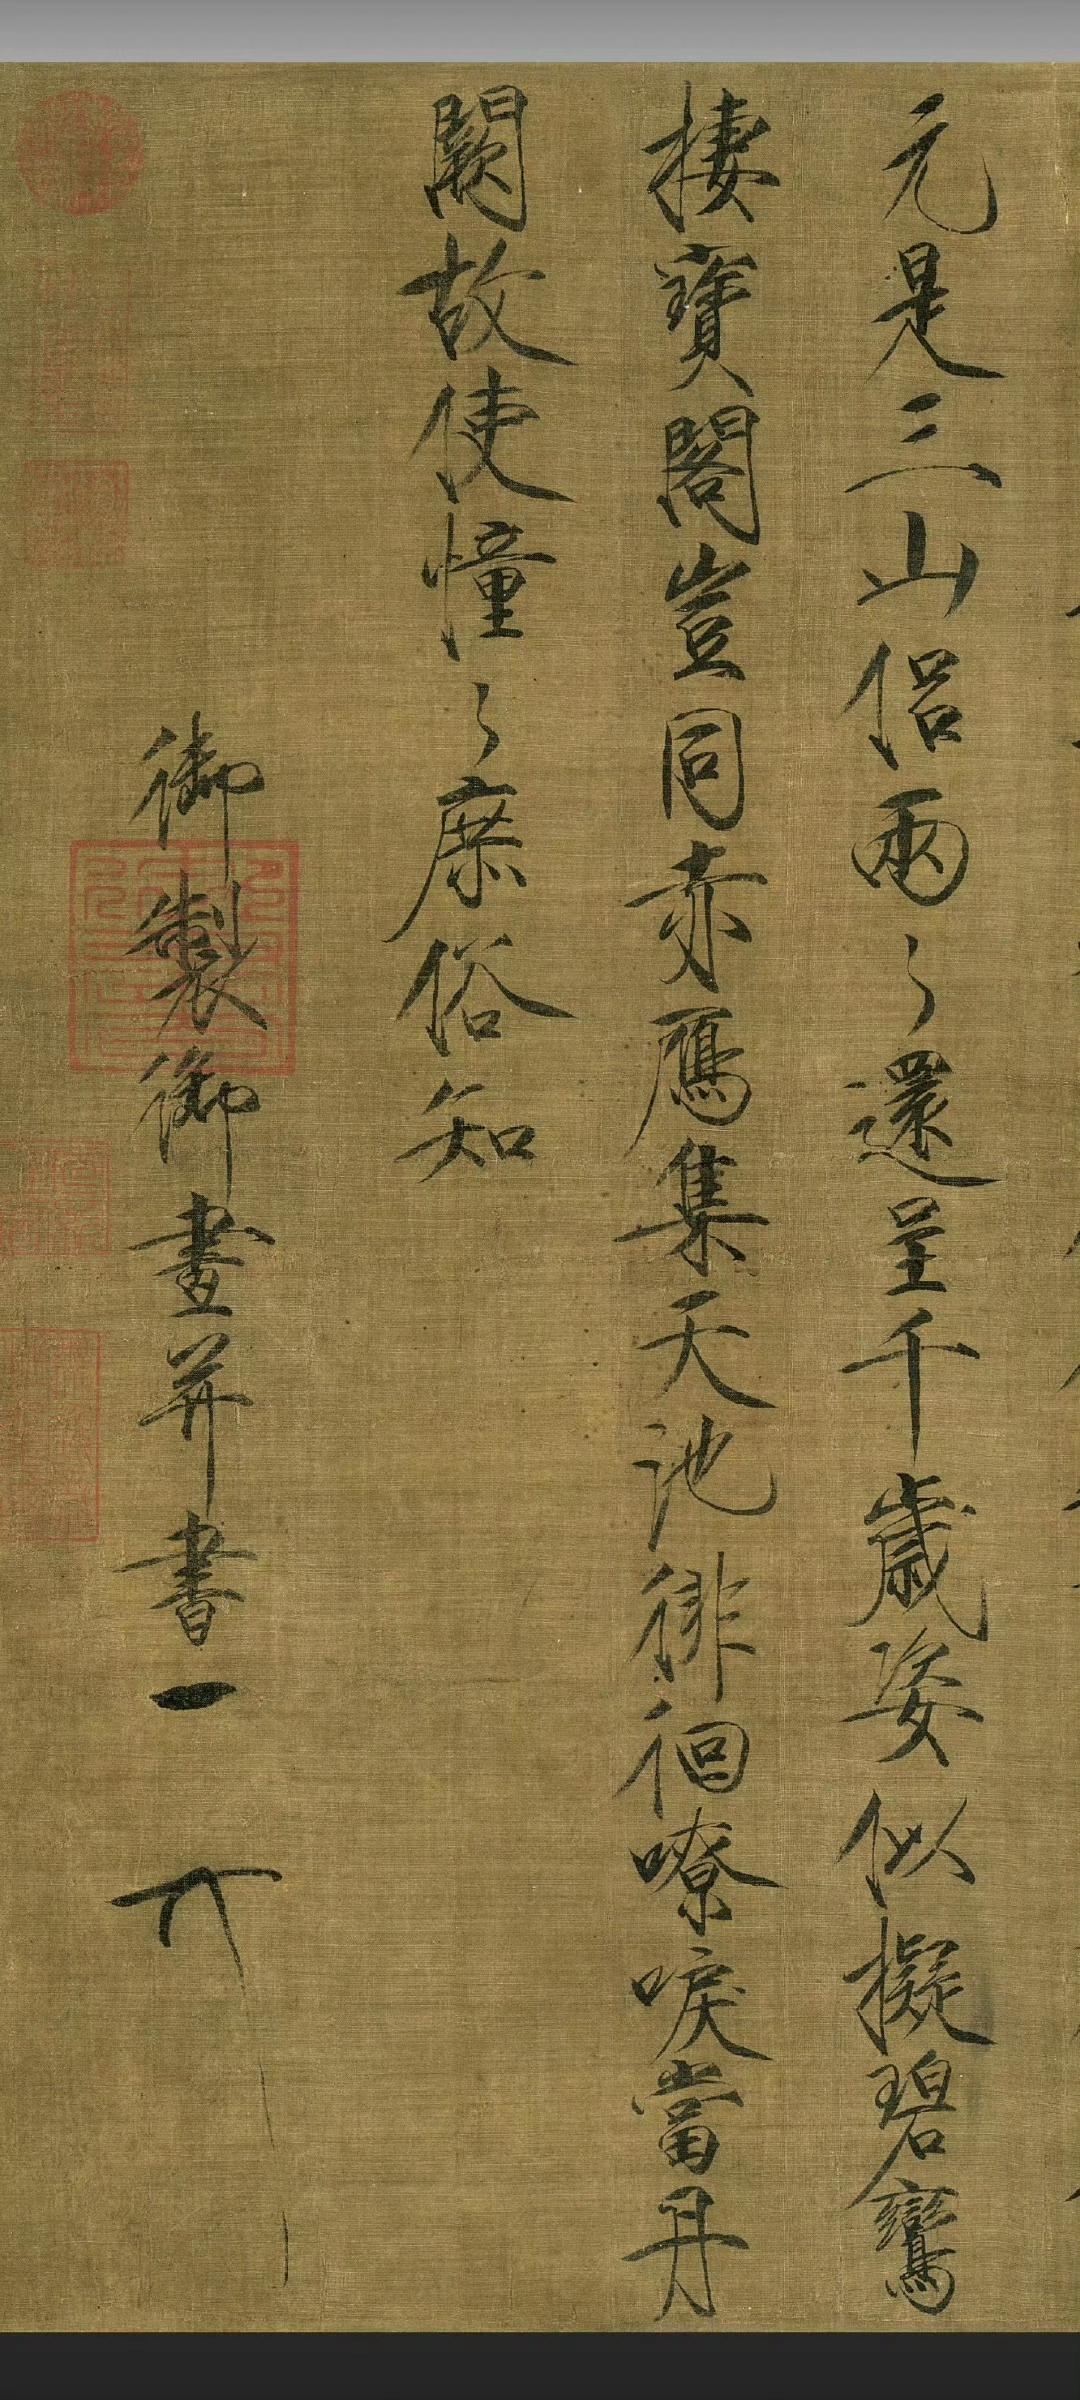 元是三山侶兩々還呈千歲姿似擬碧鸞
棲寶閣豈同赤鴈集天池徘徊嘹唳當丹
闕故使憧々庶俗知
御製御畫并書